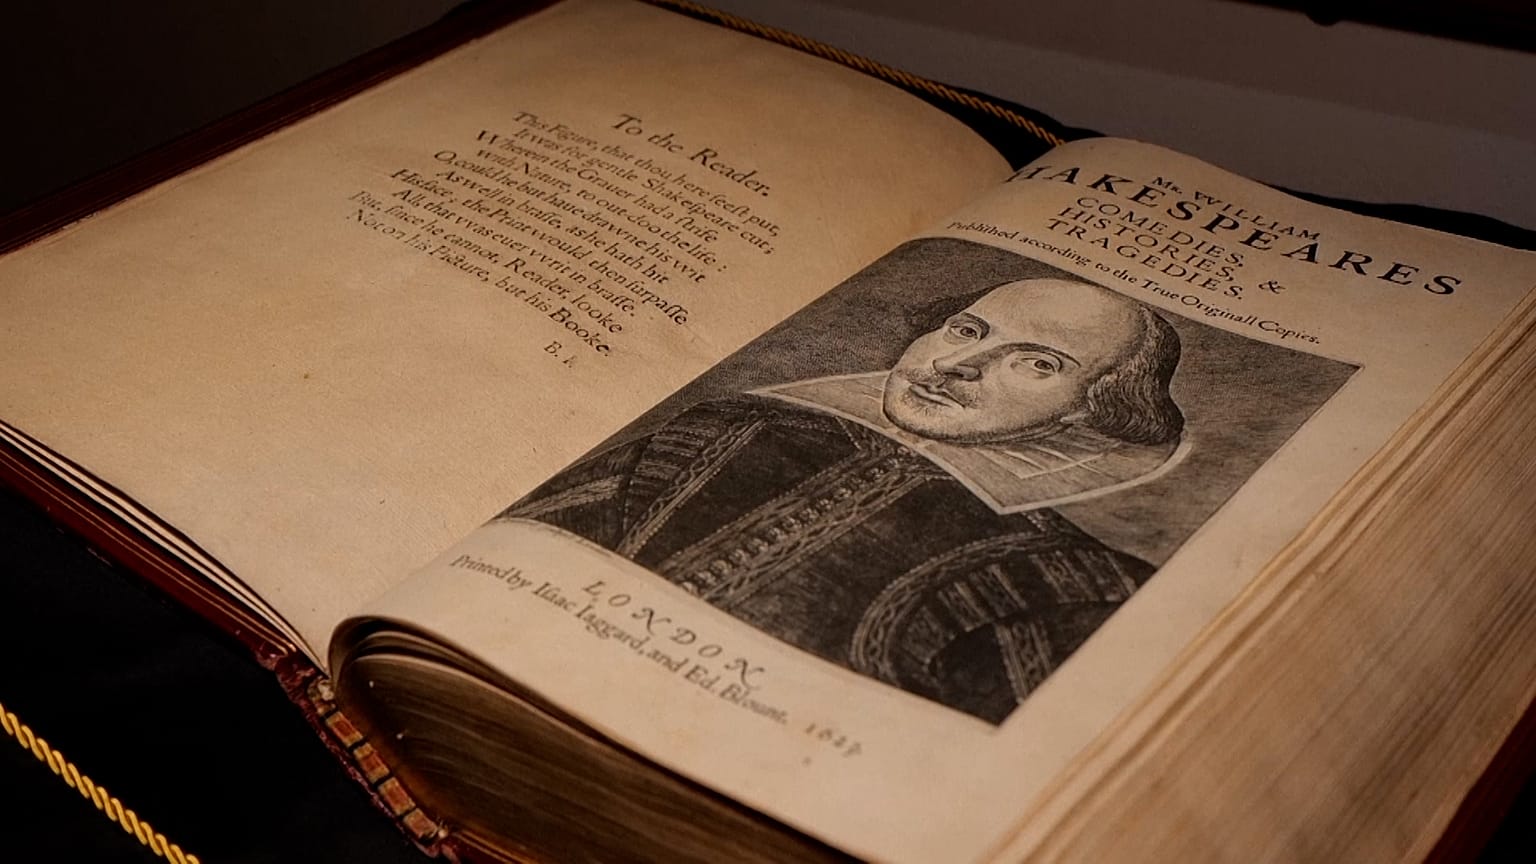 To the Reader.
This Figure, that thou here seest put,
It was for gentle Shakespeare cut;
Wherein the Grauer had a strife
with Nature, to out-doo the life :
O, could he but haue drawne his wit
As well in brasse, as he hath hit
His face ; the Print would then surpasse
All, that vvas euer vvrit in brasse.
But, since he cannot, Reader, looke
Not on his Picture, but his Booke.
B. I.
Mr. WILLIAM
SHAKESPEARES
COMEDIES,
HISTORIES, &
TRAGEDIES.
Published according to the True Originall Copies.
LONDON
Printed by Isaac Iaggard, and Ed. Blount. 1623